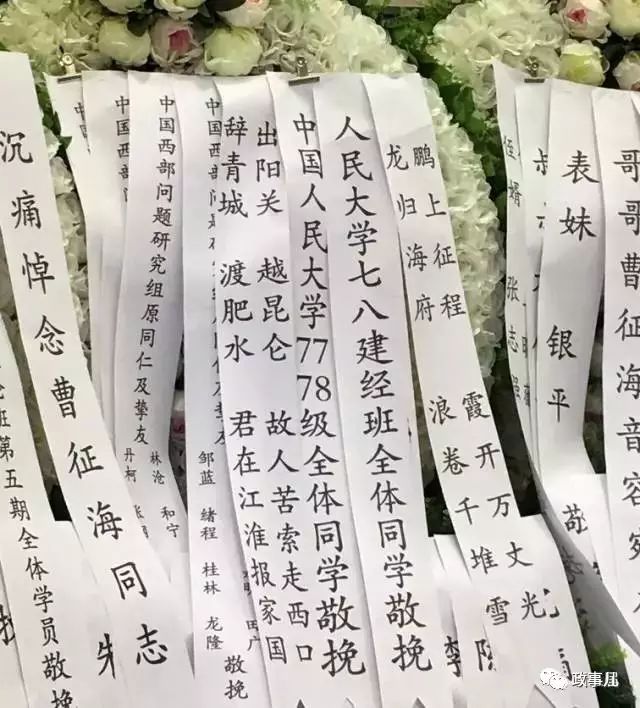 沉痛悼念曹征海同志
班第五期全体学员敬挽
朱
中国
中国西部
中国西部问题研究组原同仁及挚友
林沧 和宁
丹柯
中国西部问题研
挚友
邹蓝 绪程 桂林 龙隆 敬挽
田广
出阳关 越昆仑 故人苦索走西口
辞青城 渡肥水 君在江淮报家国
中国人民大学7778级全体同学敬挽
人民大学七八建经班全体同学敬挽
鹏上征程 霞开万丈光
龙归海府 浪卷千堆雪
李
陈
侄婿 张志强
叔
表妹 银平 敬
哥哥曹征海音容宛
政事儿